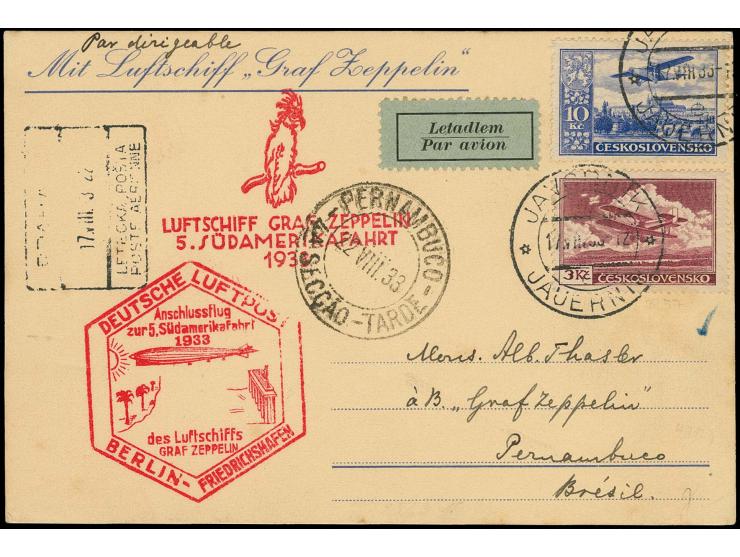 Par dirigeable
Mit Luftschiff „Graf Zeppelin"
Letadlem
Par avion
10 Kč
ČESKOSLOVENSKO
3 Kč
ČESKOSLOVENSKO
JAVORNÍK
17.VIII.33-12
JAUERNIG
17.VIII.33-1
JAUERN
PRAHA
17.VIII.3
LETECKÁ POŠTA
POSTE AÉRIENNE
LUFTSCHIFF GRAF ZEPPELIN
5. SÜDAMERIKAFAHRT
193
PERNAMBUCO
22 VIII.33
SECÇÃO - TARDE
DEUTSCHE LUFTPOST
Anschlussflug
zur 5. Südamerikafahrt
1933
des Luftschiffs
GRAF ZEPPELIN
BERLIN - FRIEDRICHSHAFEN
Mons. Alb. Thasler
à B. „Graf Zeppelin"
Pernambuco
Brésil.